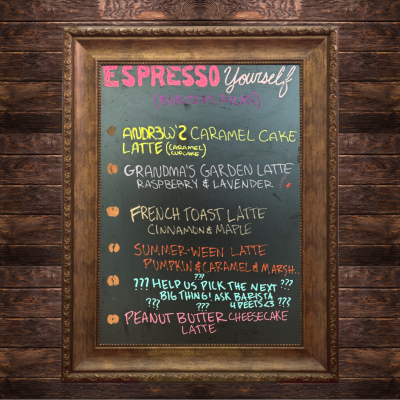 ESPRESSO Yourself
ANDR3W'S CARAMEL CAKE
LATTE (CARAMEL
CUPCAKE)
GRANDMA'S GARDEN LATTE
RASPBERRY & LAVENDER
FRENCH TOAST LATTE
CINNAMON & MAPLE
SUMMER-WEEN LATTE
PUMPKIN & CARAMEL & MARSH..
???
??? HELP US PICK THE NEXT ???
BIG THING! ASK BARISTA
??? ??? 4 DEETS <3 ???
PEANUT BUTTER CHEESECAKE
LATTE